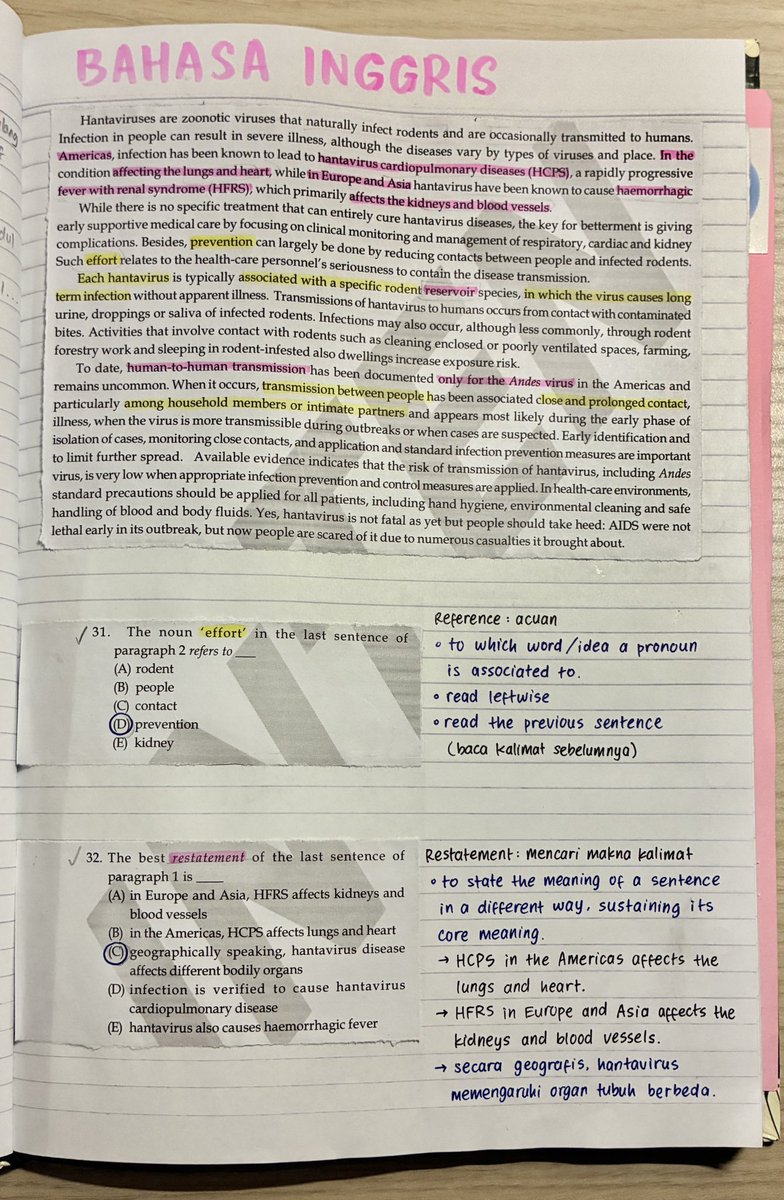 BAHASA INGGRIS
Hantaviruses are zoonotic viruses that naturally infect rodents and are occasionally transmitted to humans.
Infection in people can result in severe illness, although the diseases vary by types of viruses and place. In the
Americas, infection has been known to lead to hantavirus cardiopulmonary diseases (HCPS), a rapidly progressive
condition affecting the lungs and heart, while in Europe and Asia hantavirus have been known to cause haemorrhagic
fever with renal syndrome (HFRS), which primarily affects the kidneys and blood vessels.
While there is no specific treatment that can entirely cure hantavirus diseases, the key for betterment is giving
early supportive medical care by focusing on clinical monitoring and management of respiratory, cardiac and kidney
complications. Besides, prevention can largely be done by reducing contacts between people and infected rodents.
Such effort relates to the health-care personnel's seriousness to contain the disease transmission.
Each hantavirus is typically associated with a specific rodent reservoir species, in which the virus causes long
term infection without apparent illness. Transmissions of hantavirus to humans occurs from contact with contaminated
urine, droppings or saliva of infected rodents. Infections may also occur, although less commonly, through rodent
bites. Activities that involve contact with rodents such as cleaning enclosed or poorly ventilated spaces, farming,
forestry work and sleeping in rodent-infested also dwellings increase exposure risk.
To date, human-to-human transmission has been documented only for the Andes virus in the Americas and
remains uncommon. When it occurs, transmission between people has been associated close and prolonged contact,
particularly among household members or intimate partners and appears most likely during the early phase of
illness, when the virus is more transmissible during outbreaks or when cases are suspected. Early identification and
isolation of cases, monitoring close contacts, and application and standard infection prevention measures are important
to limit further spread. Available evidence indicates that the risk of transmission of hantavirus, including Andes
virus, is very low when appropriate infection prevention and control measures are applied. In health-care environments,
standard precautions should be applied for all patients, including hand hygiene, environmental cleaning and safe
handling of blood and body fluids. Yes, hantavirus is not fatal as yet but people should take heed: AIDS were not
lethal early in its outbreak, but now people are scared of it due to numerous casualties it brought about.
31. The noun 'effort' in the last sentence of
paragraph 2 refers to ___
(A) rodent
(B) people
(C) contact
(D) prevention
(E) kidney
Reference : acuan
• to which word/idea a pronoun
is associated to.
• read leftwise
• read the previous sentence
(baca kalimat sebelumnya)
32. The best restatement of the last sentence of
paragraph 1 is ____
(A) in Europe and Asia, HFRS affects kidneys and
blood vessels
(B) in the Americas, HCPS affects lungs and heart
(C) geographically speaking, hantavirus disease
affects different bodily organs
(D) infection is verified to cause hantavirus
cardiopulmonary disease
(E) hantavirus also causes haemorrhagic fever
Restatement : mencari makna kalimat
• to state the meaning of a sentence
in a different way, sustaining its
core meaning.
→ HCPS in the Americas affects the
lungs and heart.
→ HFRS in Europe and Asia affects the
kidneys and blood vessels.
→ secara geografis, hantavirus
memengaruhi organ tubuh berbeda.